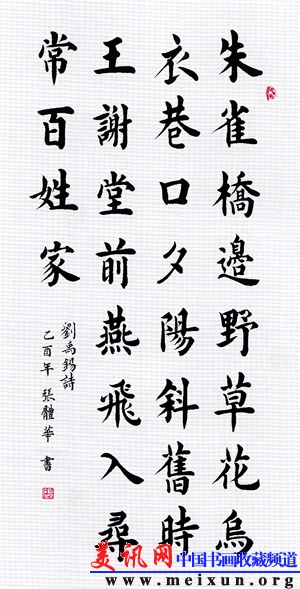 朱雀橋邊野草花烏
衣巷口夕陽斜舊時
王謝堂前燕飛入尋
常百姓家
劉禹錫詩
乙酉年張體華書
美讯网 中国书画收藏频道
www.meixun.org